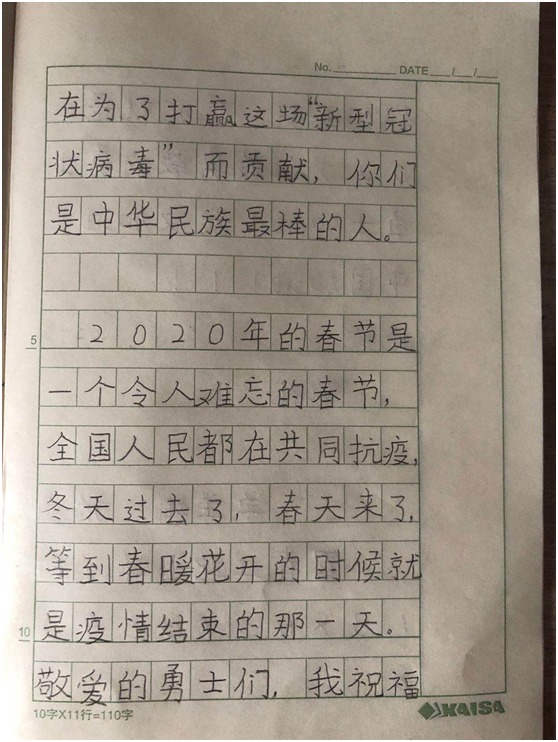 No.________ DATE___/___/___
在为了打赢这场“新型冠
状病毒”而贡献，你们
是中华民族最棒的人。
5
2020年的春节是
一个令人难忘的春节，
全国人民都在共同抗疫，
冬天过去了，春天来了，
等到春暖花开的时候就
10
是疫情结束的那一天。
敬爱的勇士们，我祝福
10字X11行=110字
KAISA